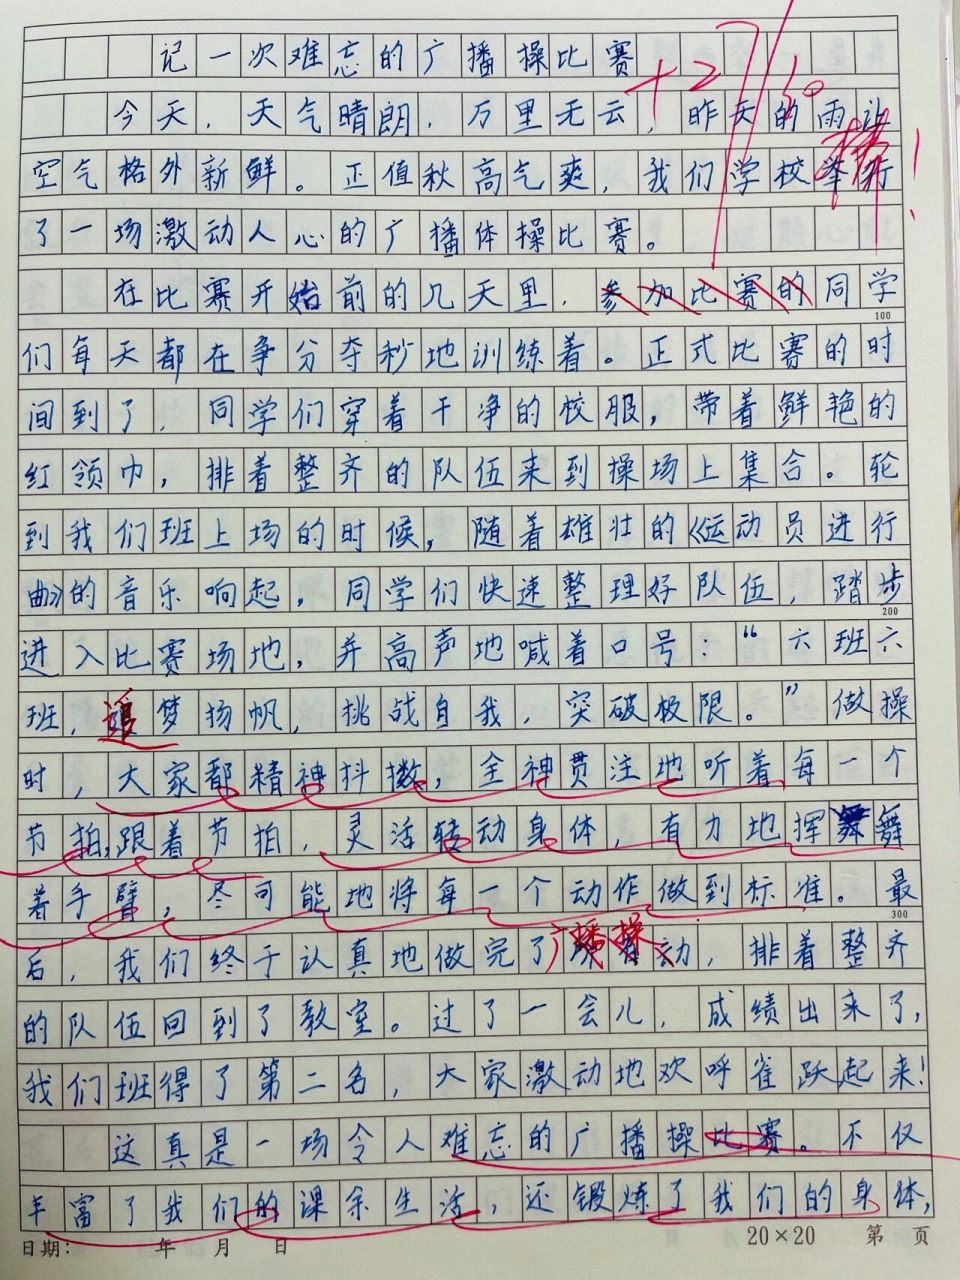 记一次难忘的广播操比赛
+2 30
今天，天气晴朗，万里无云，昨天的雨让
空气格外新鲜。正值秋高气爽，我们学校举行
了一场激动人心的广播体操比赛。
在比赛开始前的几天里，参加比赛的同学
100
们每天都在争分夺秒地训练着。正式比赛的时
间到了，同学们穿着干净的校服，带着鲜艳的
红领巾，排着整齐的队伍来到操场上集合。轮
到我们班上场的时候，随着雄壮的《运动员进行
曲》的音乐响起，同学们快速整理好队伍，踏步
200
进入比赛场地，并高声地喊着口号：“六班六
班，追梦扬帆，挑战自我，突破极限。”做操
时，大家都精神抖擞，全神贯注地听着每一个
节拍，跟着节拍，灵活转动身体，有力地挥舞
着手臂，尽可能地将每一个动作做到标准。最
300
后，我们终于认真地做完了广播操，排着整齐
的队伍回到了教室。过了一会儿，成绩出来了，
我们班得了第二名，大家激动地欢呼雀跃起来！
这真是一场令人难忘的广播操比赛。不仅
丰富了我们的课余生活，还锻炼了我们的身体，
日期： 年 月 日 20×20 第 页